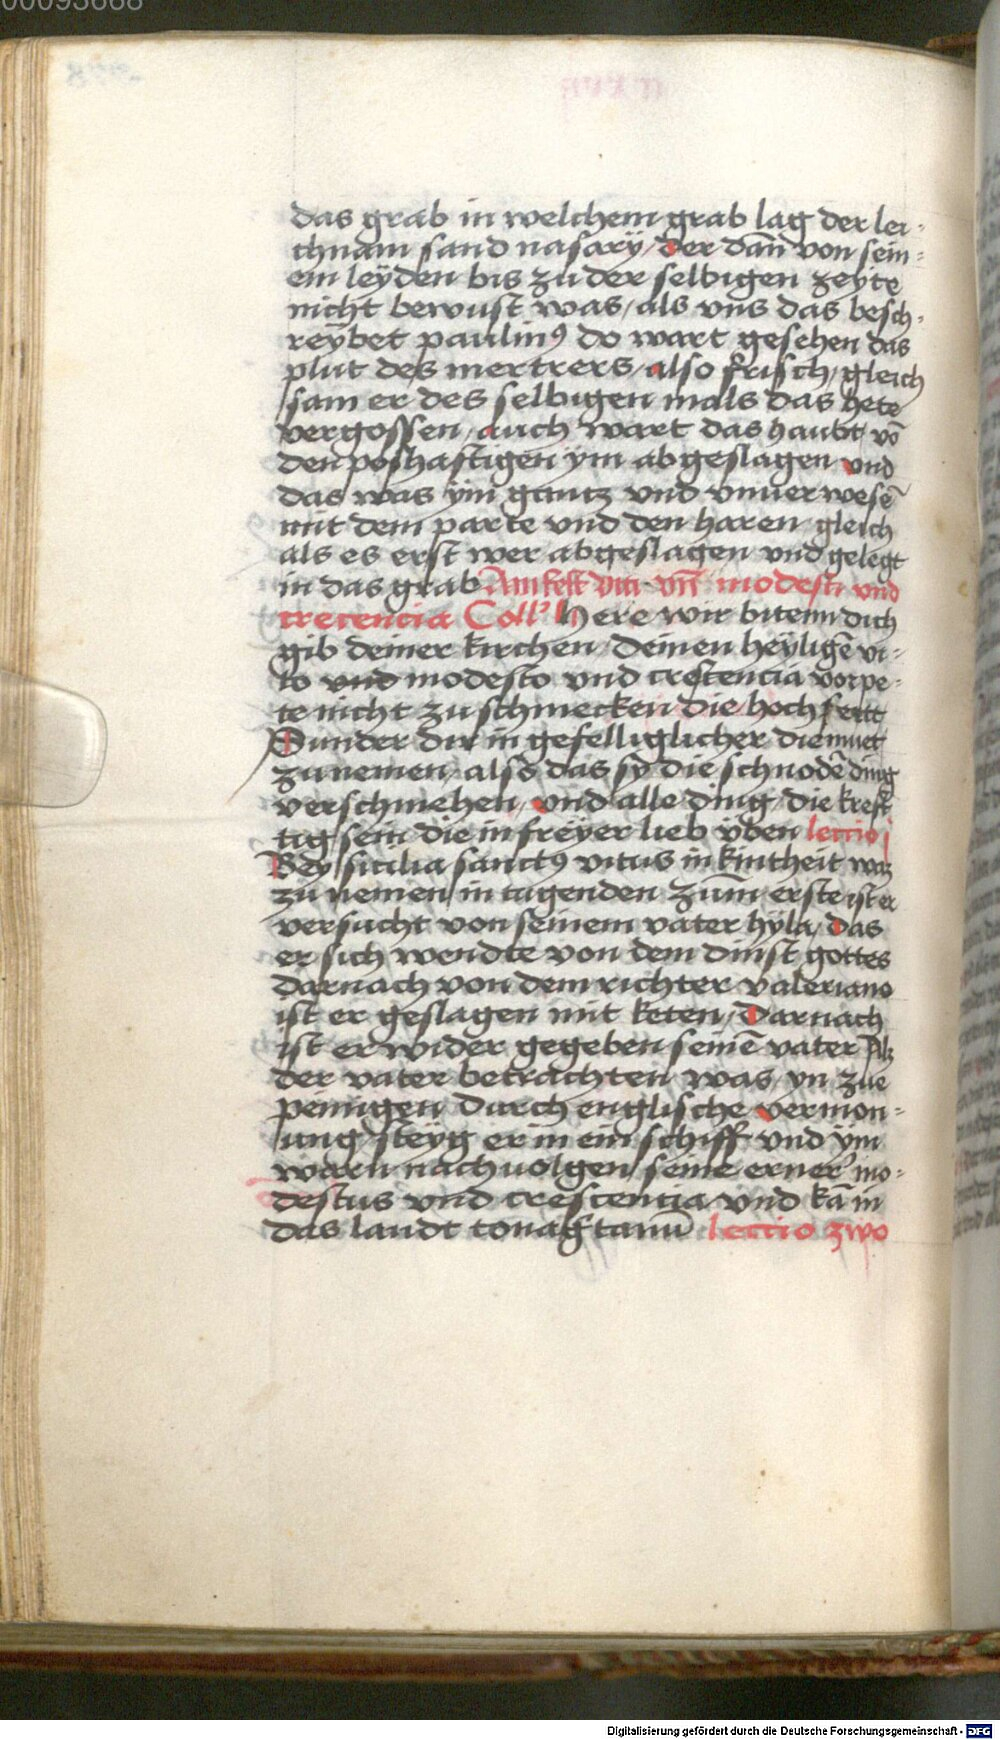 00093668
das grab in welchem grab lag der lei-
chnam sand nasarÿ / der dañ von sein-
em leyden bis zu der selbigen zeyte
nicht bewust was / als vns das besch-
reÿbet paulinꝰ do wart gesehen das
plut des mertrers / also frisch / gleich
sam er des selbigen mals das hete
vergossen / auch wart das haubt võ
den poshaftigen ym abgeslagen vnd
das was ÿm gantz vnd vnuerwesẽ
mit dem parte vnd den haren gleich
als es erst wer abgeslagen vnd gelegt
in das grab Am fest viti vñ modesti vnd
crecencia Coll' Here wir bitenn dich
gib deiner kirchen / deinen heÿligẽ vi-
to vnd modesto vnd crescencia vorpe-
te nicht zu schmecken die hochfertt
Sunder dir in gefelliglicher diemuet
zu nemen / also das sÿ die schnodẽ ding
verschmehen / vnd alle ding / die kref
tig sein die in freÿer lieb vben lectio j
Bey sicilia sanctꝰ vitus in kintheit waz
zu nemen in tugenden zum erste ist er
versucht von seinem vater hÿla / das
er sich wendte von dem dinst gottes
darnach von dem richter valeriano
ist er geslagen mit keten / Darnach
ist er wider gegeben seinẽ vater Alz
der vater betrachten was / yn zue
peinigen durch englische vermon-
ung / steÿg er in ein schiff vnd ÿm
warn nachuolgen seine erner mo-
destus vnd crescencia vnd kã in
das landt tonagtanũ lectio zwo
Digitalisierung gefördert durch die Deutsche Forschungsgemeinschaft - DFG